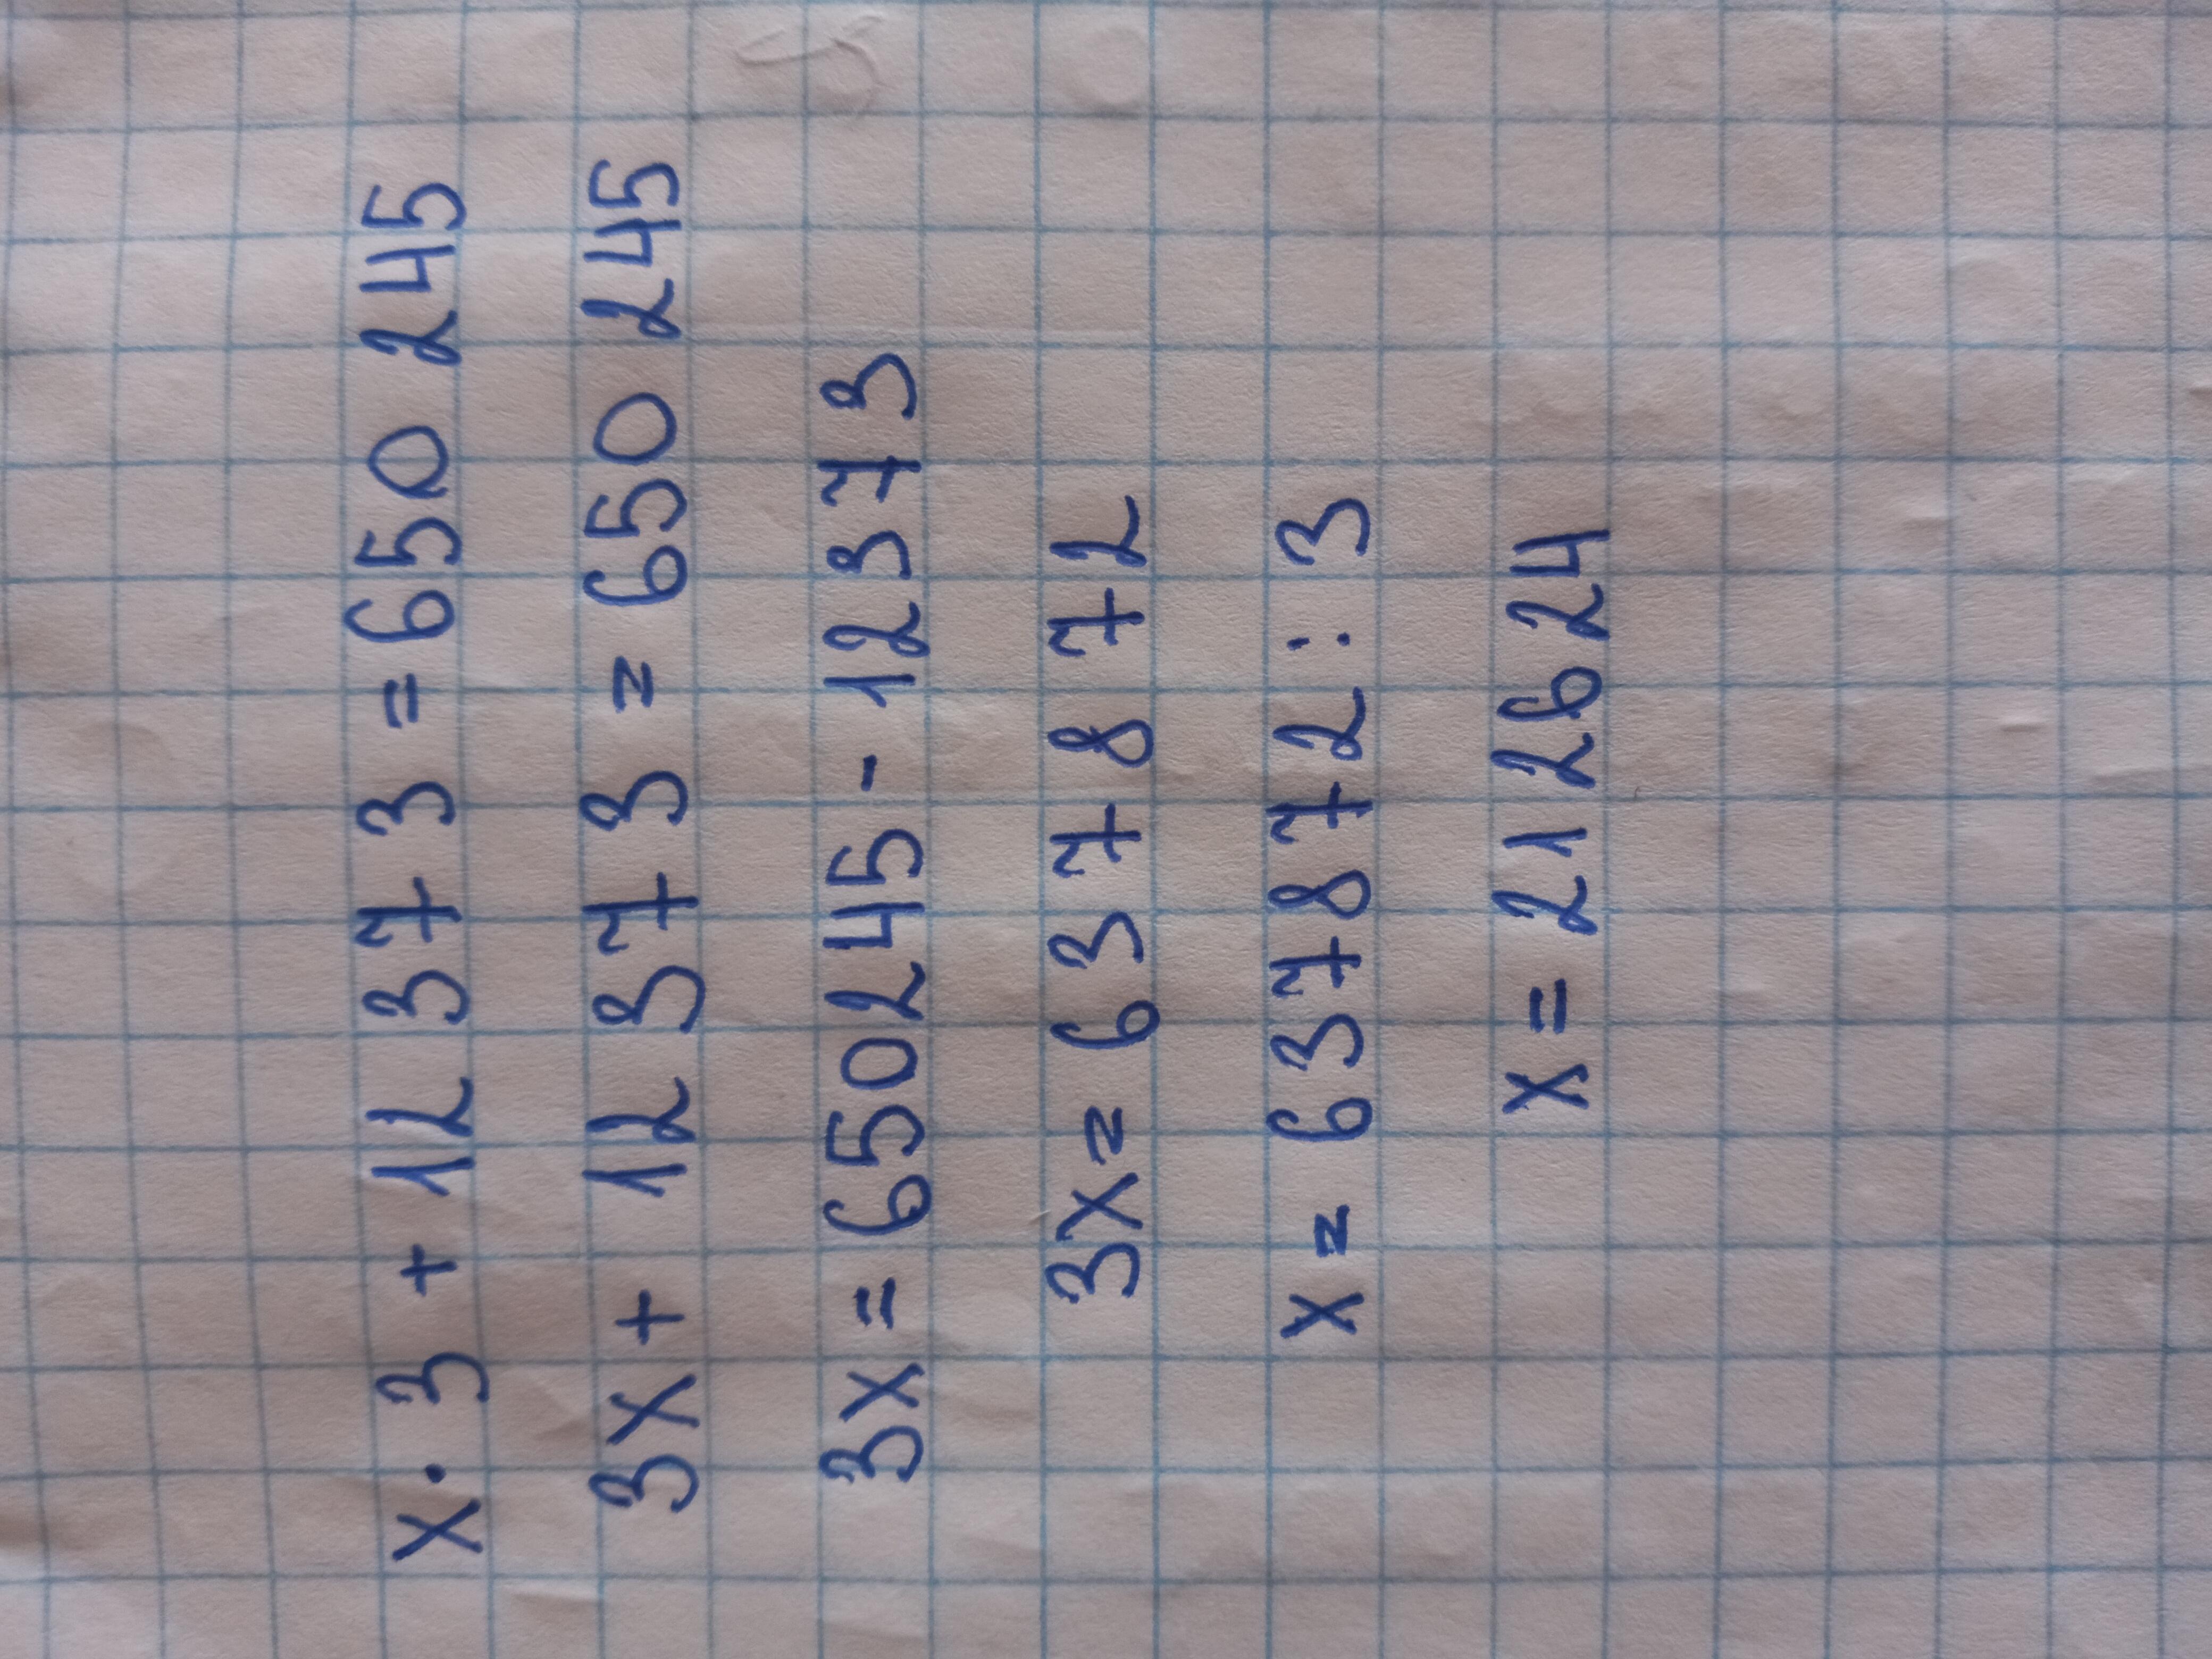 x · 3 + 12 373 = 650 245
3x + 12 373 = 650 245
3x = 650245 - 12373
3x = 637872
x = 637872 : 3
x = 212624